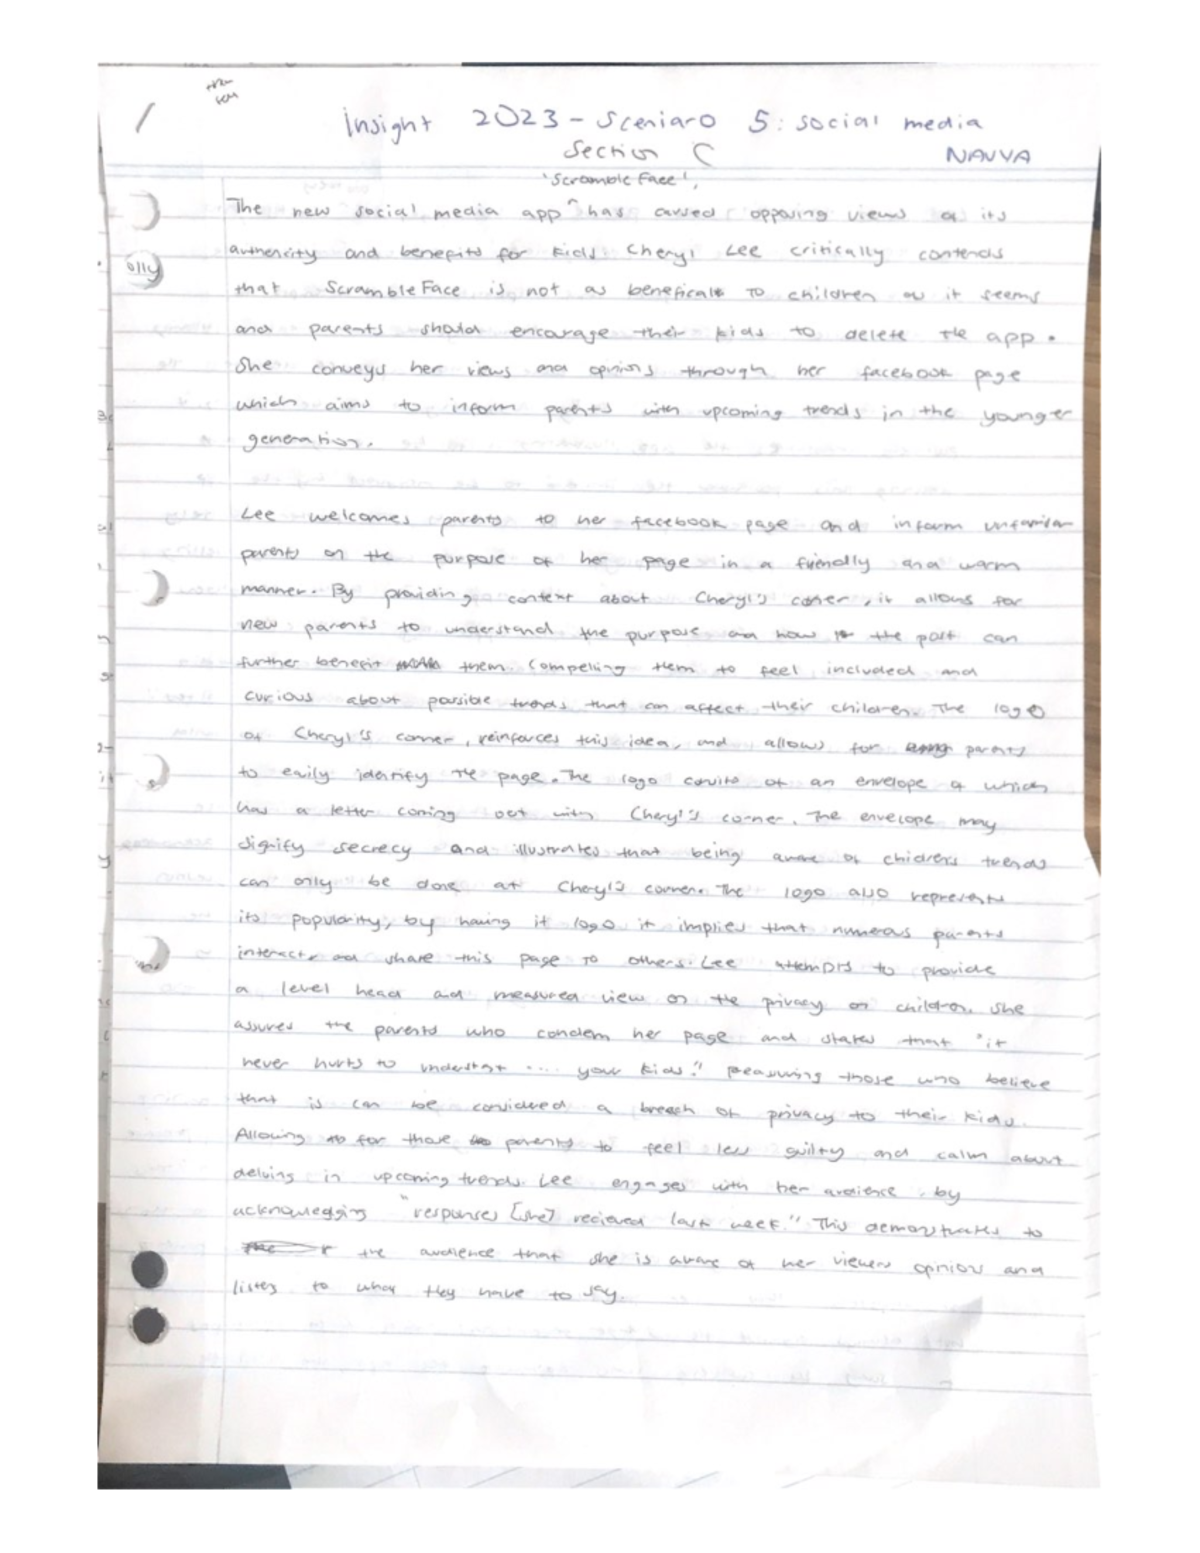 Insight 2023 - Sceniaro 5: social media
Section C
NAVYA
'Scramble Face',
The new social media app ^ has caused opposing views of its
authencity and benefits for kids. Cheryl Lee critically contends
olly
that ScrambleFace is not as benefical to children as it seems
and parents should encourage their kids to delete the app.
She conveys her views and opinions through her facebook page
which aims to inform parents with upcoming trends in the younger
generation.
Lee welcomes parents to her facebook page and inform unfamiliar
parents on the purpose of her page in a friendly and warm
manner. By providing context about Cheryl's corner, it allows for
new parents to understand the purpose and how the post can
further benefit them. Compelling them to feel included and
curious about possible trends that can affect their children. The logo
of Cheryl's corner, reinforces this idea, and allows for parents
to easily identify the page. The logo consits of an envelope of which
has a letter coming out with Cheryl's corner. The envelope may
signify secrecy and illustrates that being aware of childrens trends
can only be done at Cheryl's corner. The logo also represents
its popularity, by having it logo it implies that numerous parents
interact and share this page to others. Lee attempts to provide
a level head and measured view on the privacy on children. She
assures the parents who condem her page and states that "it
never hurts to understand .... your kids." Reassuring those who believe
that is can be considered a breach of privacy to their kids.
Allowing for those parents to feel less guilty and calm about
delving in upcoming trends. Lee engages with her audience by
acknowlegging "responses [she] recieved last week." This demonstrates to
the audience that she is aware of her viewers opinions and
listens to what they have to say.